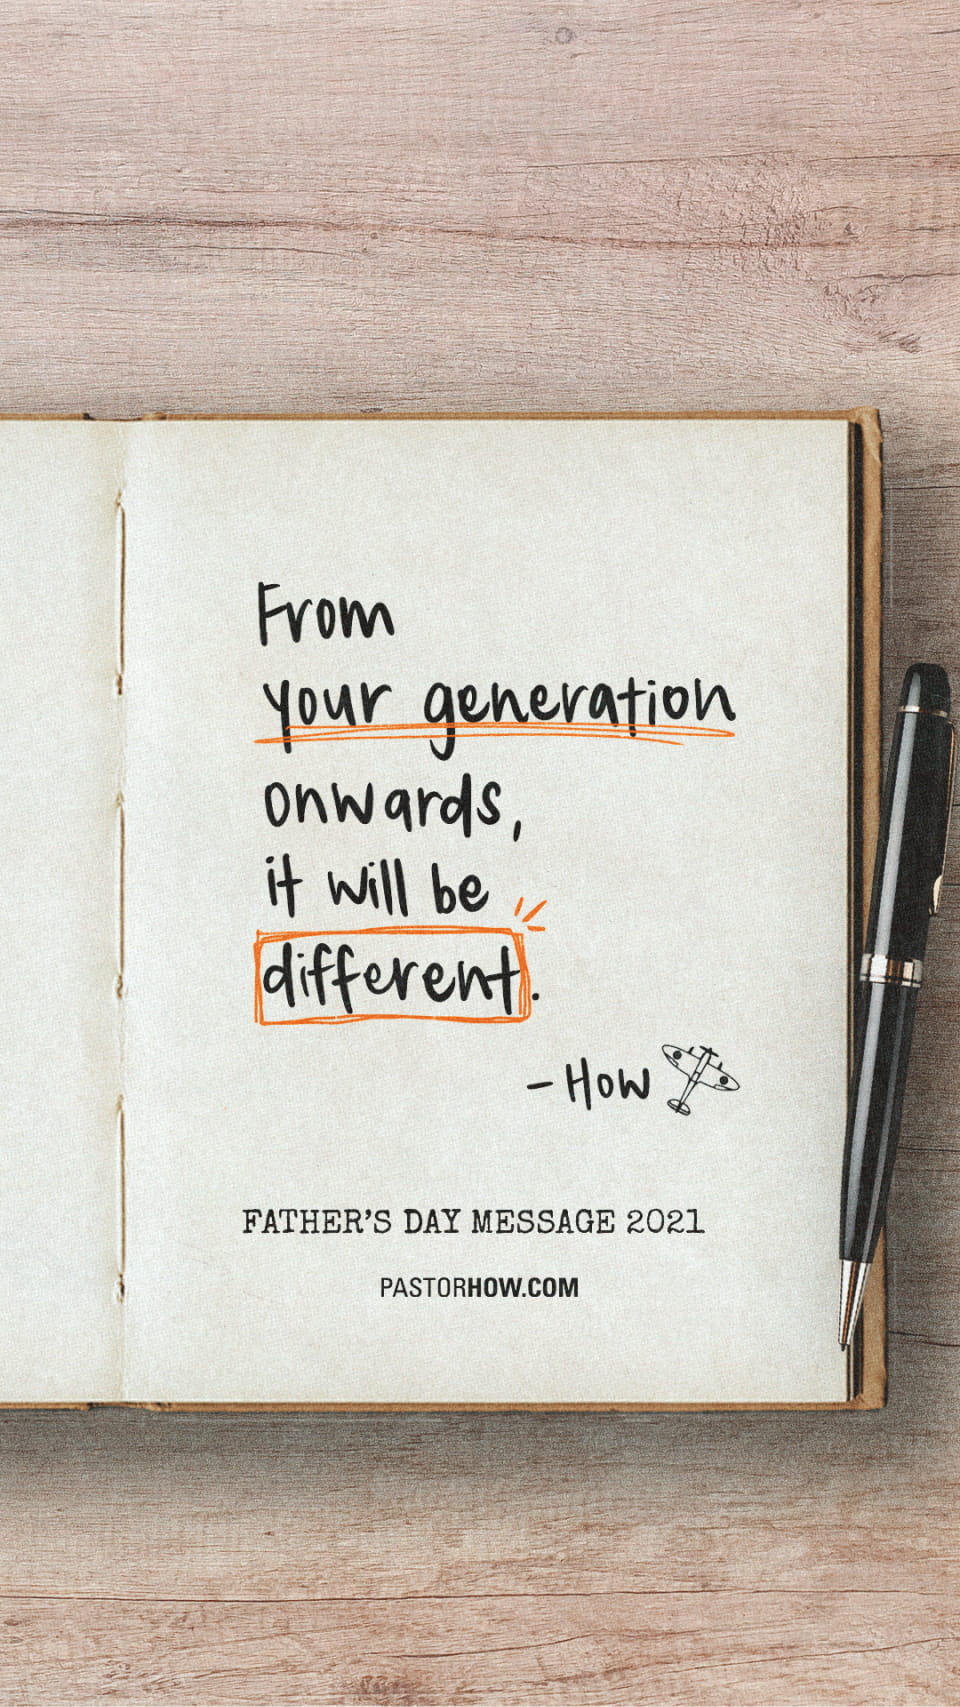 From
your generation
onwards,
it will be
different.
- How
FATHER'S DAY MESSAGE 2021
PASTORHOW.COM